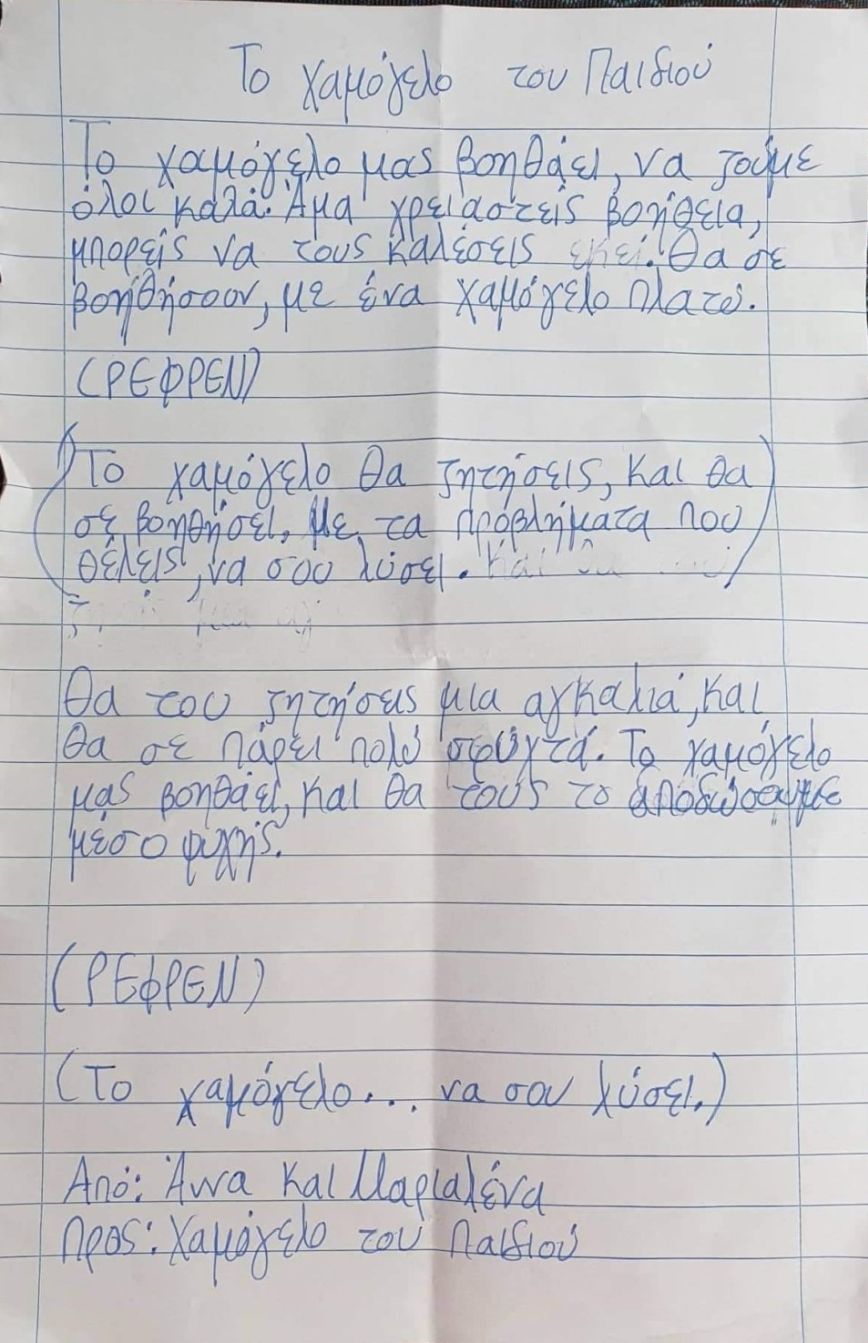 Το χαμόγελο του Παιδιού
Το χαμόγελο μας βοηθάει, να ζούμε
όλοι καλά. Άμα χρειαστείς βοήθεια,
μπορείς να τους καλέσεις εκεί. Θα σε
βοηθήσουν, με ένα χαμόγελο πλατύ.
(ΡΕΦΡΕΝ)
(Το χαμόγελο θα ζητήσεις, και θα
σε βοηθήσει. Με τα προβλήματα που
θέλεις, να σου λύσει.)
Θα του ζητήσεις μια αγκαλιά, και
θα σε πάρει πολύ σφυχτά. Το χαμόγελο
μας βοηθάει, και θα τους το αποδώσουμε
μέσο ψυχής.
(ΡΕΦΡΕΝ)
(Το χαμόγελο... να σου λύσει.)
Από: Άννα και Μαριαλένα
Προς: Χαμόγελο του Παιδιού